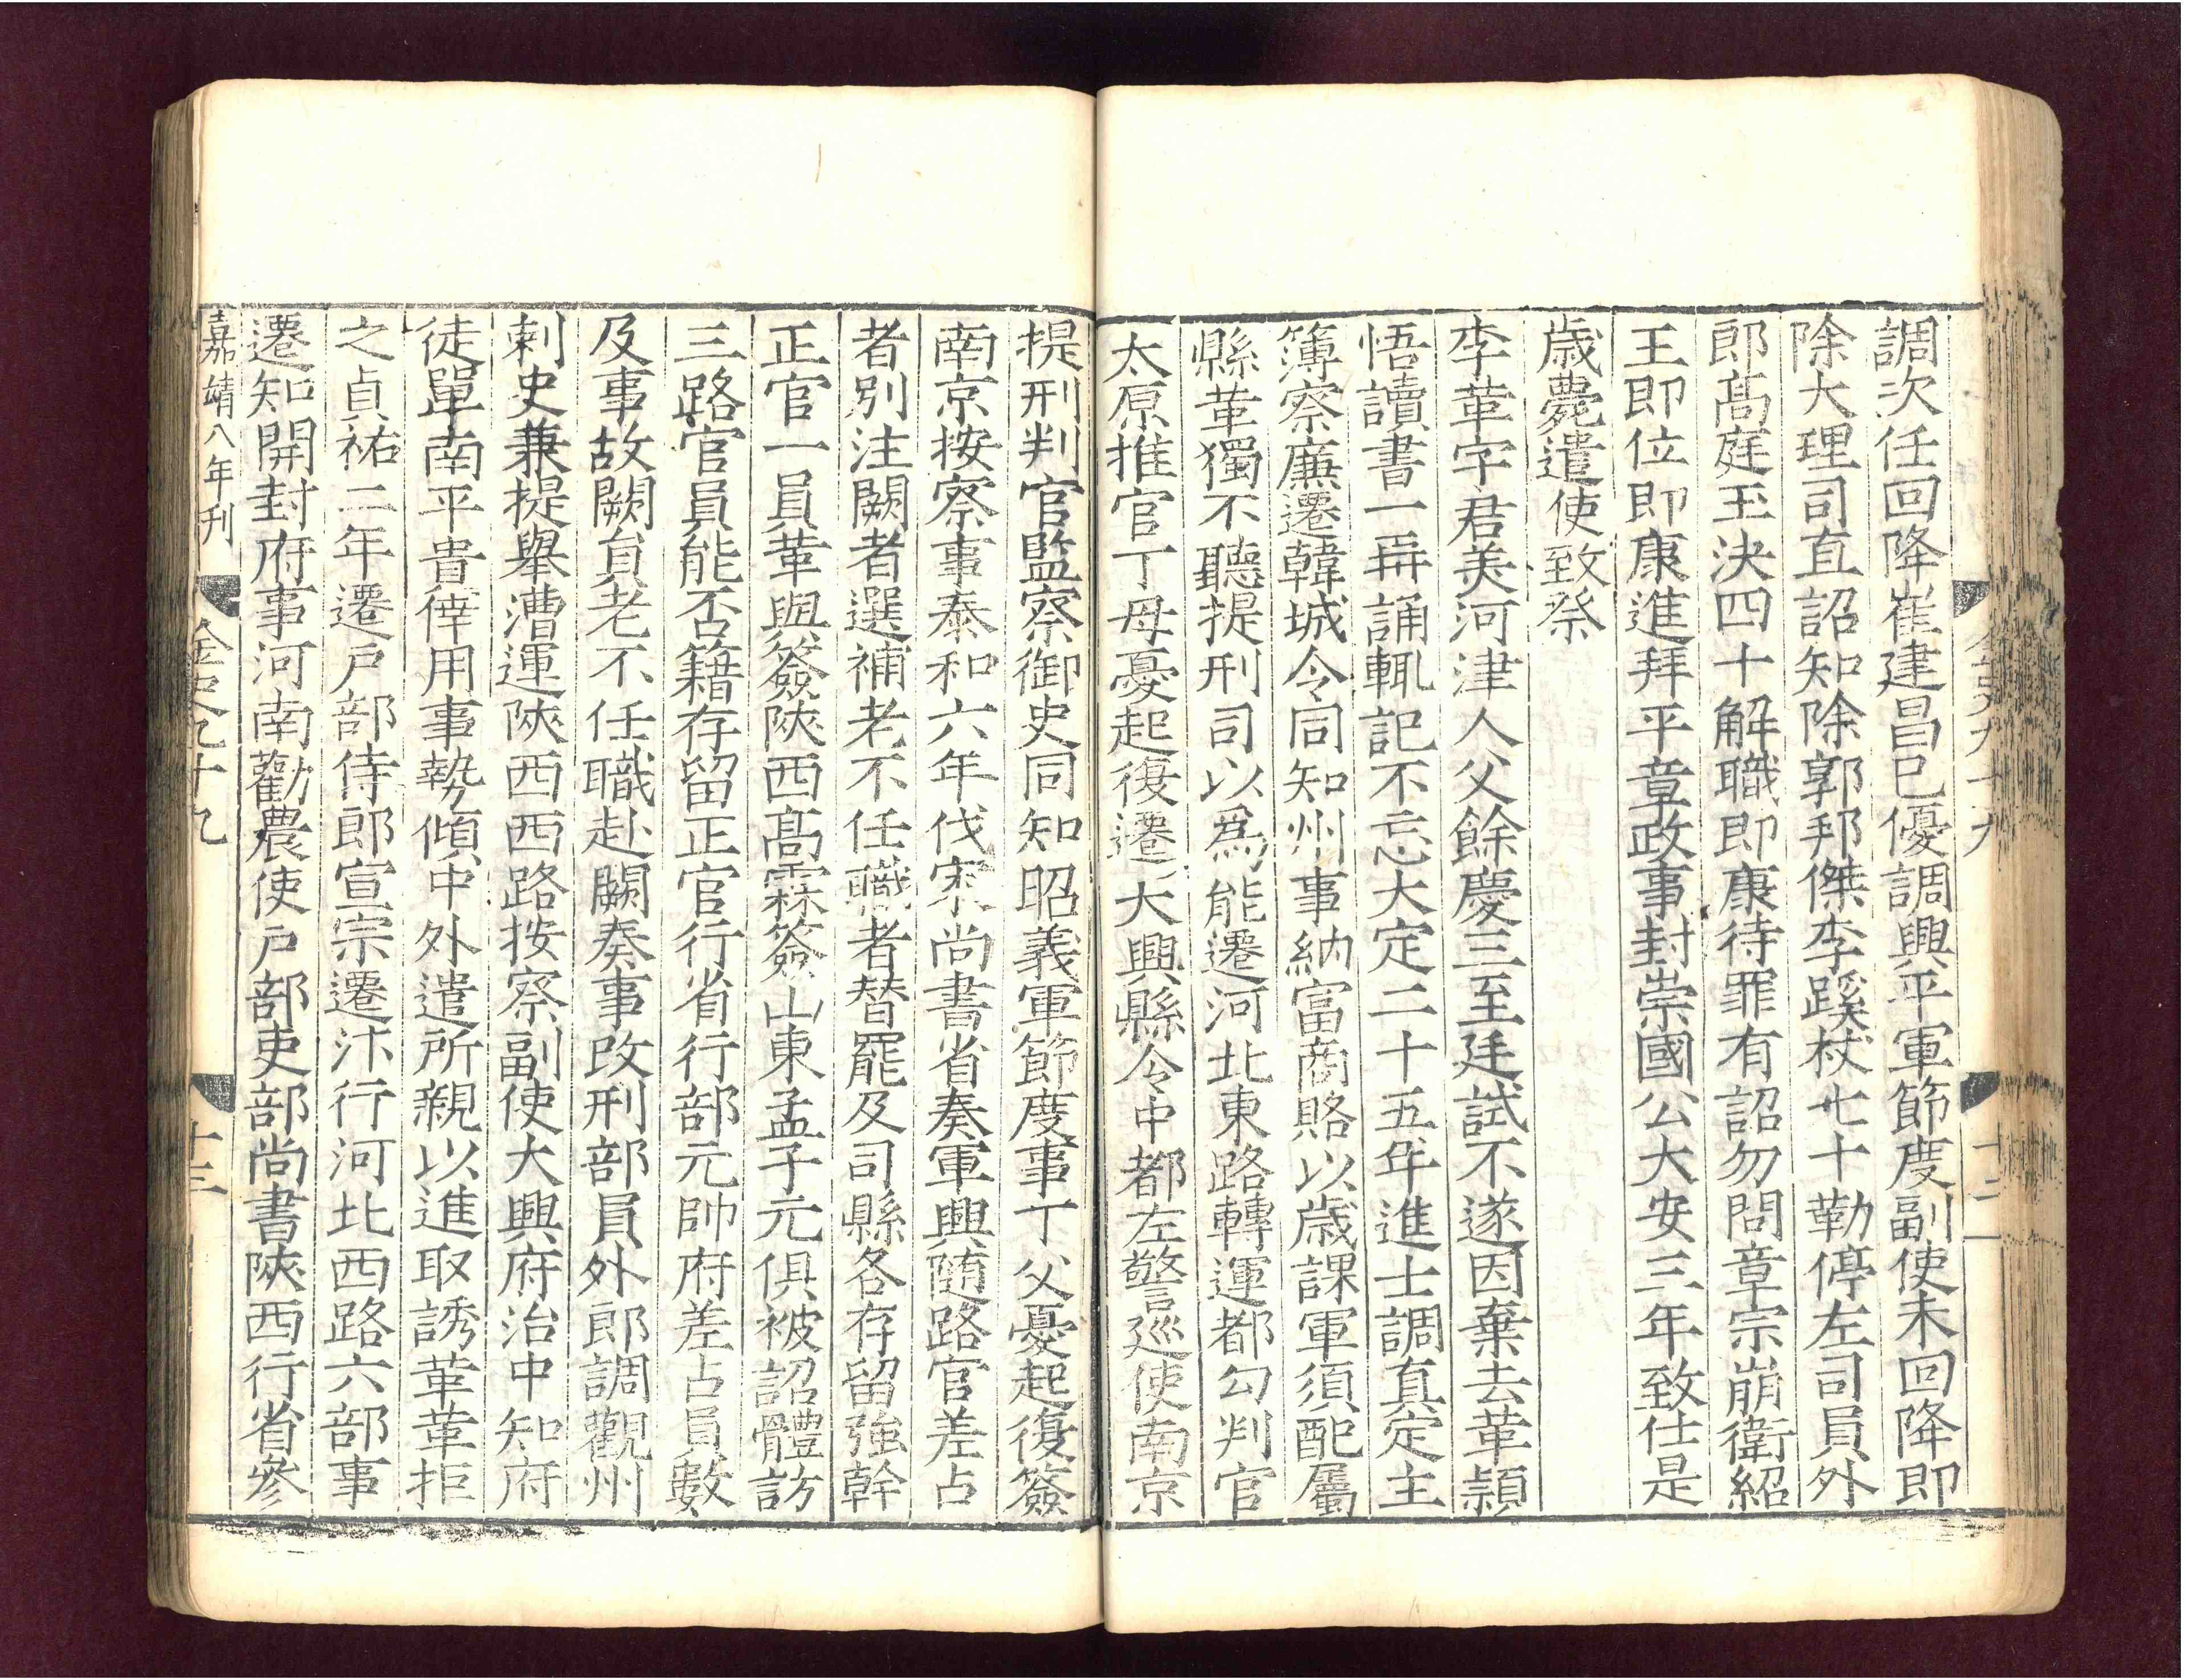 調次任回降崔建昌已優調興平軍節度副使未回降即
除大理司直詔知除郭邦傑李蹊杖七十勒停左司員外
郎高庭玉決四十解職即康待罪有詔勿問章宗崩衛紹
王即位即康進拜平章政事封崇國公大安三年致仕是
歲薨遣使致祭
李革字君美河津人父餘慶三至廷試不遂因棄去革穎
悟讀書一再誦輒記不忘大定二十五年進士調真定主
簿察廉遷韓城令同知州事納富商賂以歲課軍須配屬
縣革獨不聽提刑司以爲能遷河北東路轉運都勾判官
太原推官丁母憂起復遷大興縣令中都左警巡使南京
提刑判官監察御史同知昭義軍節度事丁父憂起復簽
南京按察事泰和六年伐宋尚書省奏軍興隨路官差占
者別注闕者選補老不任職者替罷及司縣各存留強幹
正官一員革與簽陝西高霖簽山東孟子元俱被詔體訪
三路官員能否籍存留正官行省行部元帥府差占員數
及事故闕員老不任職赴闕奏事改刑部員外郎調觀州
刺史兼提舉漕運陝西西路按察副使大興府治中知府
徒單南平貴倖用事勢傾中外遣所親以進取誘革革拒
之貞祐二年遷戶部侍郎宣宗遷汴行河北西路六部事
遷知開封府事河南勸農使戶部吏部尚書陝西行省參
嘉靖八年刊
金史九十九
十三